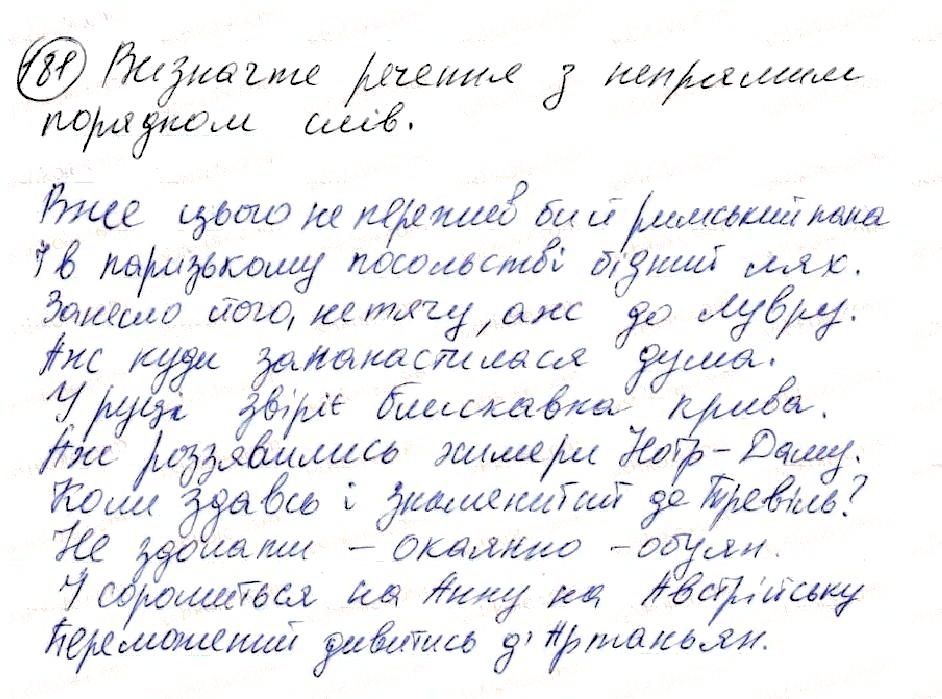 181 Визначте речення з непрямим
порядком слів.
Вже цього не пережив би й римський папа
І в паризькому посольстві бідний лях.
Занесло його, нетягу, аж до Лувру.
Аж куди запапастилася дума.
У руці звіріє блискавка крива.
Аж роззявились химери Нотр-Даму.
Коли здавсь і знаменитий де Тревіль?
Не здолати - окаянно - обуян.
І соромиться на Анну на Австрійську
Переможений дивитись д'Артаньян.